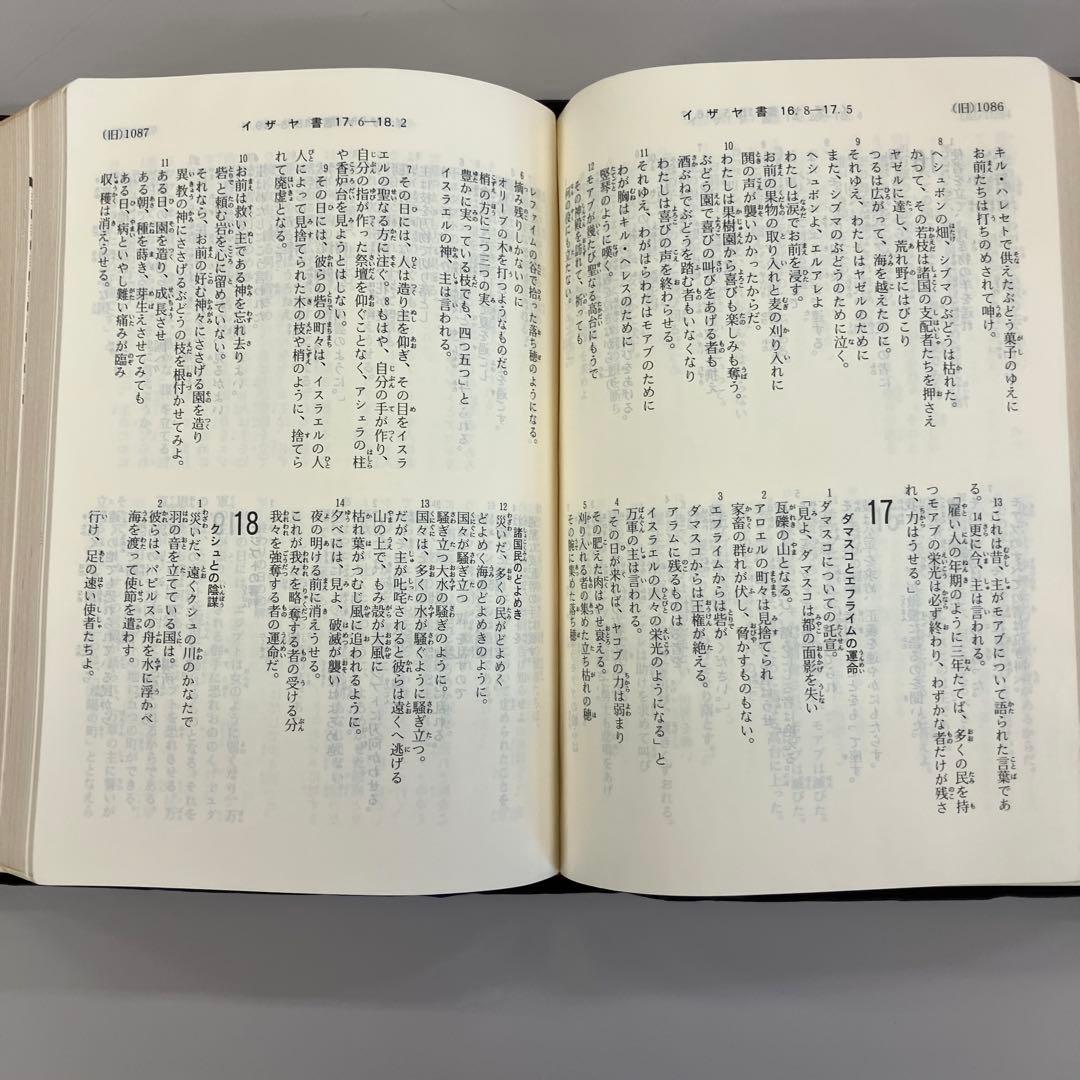 (旧)1086
イザヤ書 16.8—17.5
キル・ハレセトで供えたぶどう菓子のゆえに
お前たちは打ちのめされて呻け。
8 ヘシュボンの畑、シブマのぶどうは枯れた。
かつて、その若枝は諸国の支配者たちを押さえ
ヤゼルに達し、荒れ野にはびこり
つるは広がって、海を越えたのに。
9 それゆえ、わたしはヤゼルのために
また、シブマのぶどうのために泣く。
ヘシュボンよ、エルアレよ
わたしは涙でお前を浸す。
お前の果物の取り入れと麦の刈り入れに
鬨の声が襲いかかったからだ。
10 わたしは果樹園から喜びも楽しみも奪う。
ぶどう園で喜びの叫びをあげる者も
酒ぶねでぶどうを踏む者もいなくなり
わたしは喜びの声を終わらせる。
11 それゆえ、わがはらわたはモアブのために
わが胸はキル・ヘレスのために
竪琴のように嘆く。
12 モアブが幾たび聖なる高台にもうで
その神殿を訪れて、祈っても
13 これは昔、主がモアブについて語られた言葉であ
る。14 更に今、主は言われる。
「雇い人の年期のように三年たてば、多くの民を持
つモアブの栄光は必ず終わり、わずかな者だけが残さ
れ、力はうせる。」
17
ダマスコとエフライムの運命
1 ダマスコについての託宣。
「見よ、ダマスコは都の面影を失い
瓦礫の山となる。
2 アロエルの町々は見捨てられ
家畜の群れが伏し、脅かすものもない。
3 エフライムからは砦が
ダマスコからは王権が絶える。
アラムに残るものは
イスラエルの人々の栄光のようになる」と
万軍の主は言われる。
4 「その日が来れば、ヤコブの力は弱まり
その肥えた肉はやせ衰える。
5 刈り入れる者の集めた立ち枯れの穂
その腕に集めた落ち穂
(旧)1087
イザヤ書 17.6—18.2
レファイムの谷で拾った落ち穂のようになる。
6 摘み残りしかないのに
オリーブの木を打つようなものだ。
梢の方に二つ三つの実
豊かに実っている枝でも、四つ五つ」と
イスラエルの神、主は言われる。
7 その日には、人は造り主を仰ぎ、その目をイスラ
エルの聖なる方に注ぐ。8 もはや、自分の手が作り、
自分の指が作った祭壇を仰ぐことなく、アシェラの柱
や香炉台を見ようとはしない。
9 その日には、彼らの砦の町々は、イスラエルの人
人によって見捨てられた木の枝や梢のように、捨てら
れて廃虚となる。
10 お前は救い主である神を忘れ去り
砦と頼む岩を心に留めていない。
それなら、お前の好む神々にささげる園を造り
異教の神にささげるぶどうの枝を根付かせてみよ。
11 ある日、園を造り、成長させ
ある朝、種を蒔き、芽生えさせてみても
ある日、病といやし難い痛みが臨み
収穫は消えうせる。
諸国民のどよめき
12 災いだ、多くの民がどよめく
どよめく海のどよめきのように。
国々が騒ぎ立つ
騒ぎ立つ大水の騒ぎのように。
13 国々は、多くの水が騒ぐように騒ぎ立つ。
だが、主が叱咤されると彼らは遠くへ逃げる
山の上で、もみ殻が大風に
枯れ葉がつむじ風に追われるように。
14 夕べには、見よ、破滅が襲い
夜の明ける前に消えうせる。
これが我々を略奪する者の受ける分
我々を強奪する者の運命だ。
18
クシュとの陰謀
1 災いだ、遠くクシュの川のかなたで
羽の音を立てている国は。
2 彼らは、パピルスの舟を水に浮かべ
海を渡って使節を遣わす。
行け、足の速い使者たちよ。